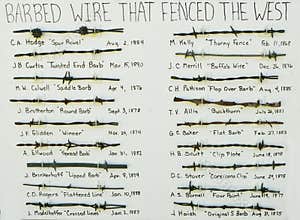 BARBED WIRE THAT FENCED THE WEST
C.A. Hodge "Spur Rowel" Aug. 2, 1887
J.B. Curtis "Twisted End Barb" Mar. 15, 1890
M.W. Colwell "Saddle Barb" Apr. 4, 1876
J. Brotherton "Bound Barb" Sept. 3, 1878
J.F. Glidden "Winner" Nov. 24, 1874
A. "Spread Barb" Jan. 31, 1882
J. Brinkerhoff "Lipped Barb" Apr. 1879
C.D. Rogers "Flattened Line" Jan. 10, 1888
L. "Crossed Lines" Jan. 2, 1883
M. Kelly "Thorny Fence" Feb. 11, 1868
J.C. Merrill "Buffalo Wire" Dec. 26, 1876
C.H. Pattison "Flop Over Barb" Aug. 4, 1885
T.V. Allis "Buckthorn" July 26, 1881
G.C. Baker "Flat Barb" Feb. 27, 1883
H.B. Scutt "Clip Plate" June 18, 1878
D.C. Stover "Corsicana Clip" June 29, 1875
A.S. Burnell "Four Point" June 19, 1877
J. Haish "Original S Barb" Aug. 31, 1875